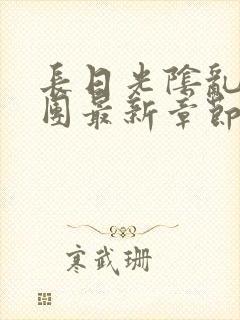 長日光陰亂
團最新章節
寒武珊